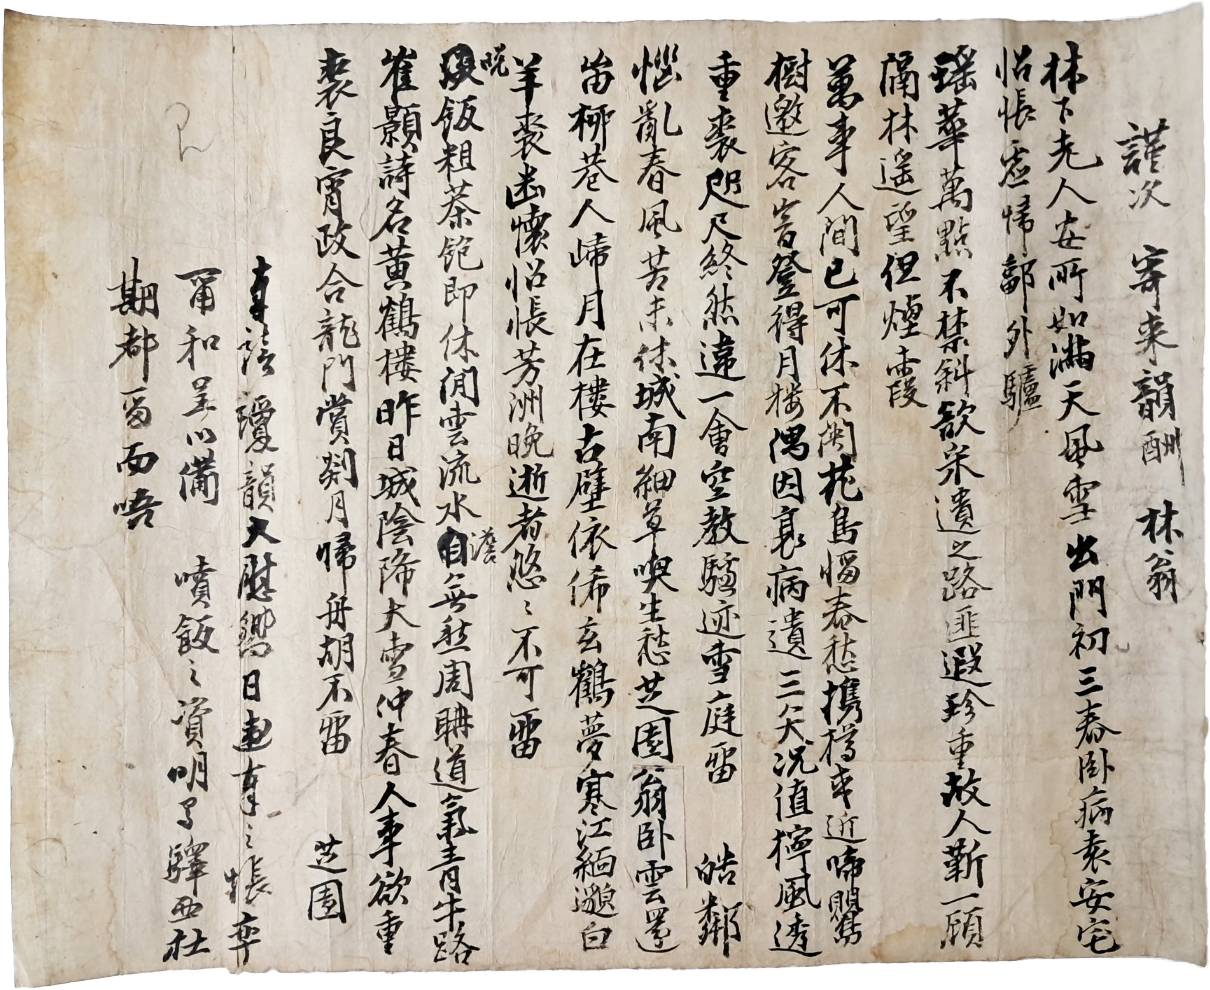 謹次 寄來韻酬 林翁
林下老人安所如滿天風雪出門初三春臥病袁安宅
怊悵虛歸郭外驢
瑤華萬點不禁斜欲采遺之路匪遐珍重故人靳一顧
隔林遥望但煙霞
萬事人間已可休不關花鳥惱春愁携樽來近啼鸎
樹邀客官登得月楼偶因衰病遺三矣况值檸風透
重裘咫尺終然違一會空教驢迹雪庭留 皓鄰
惱亂春風苦未休城南細草喚生愁芝園翁臥雲還
留柳巷人歸月在樓古壁依俙玄鶴夢寒江緬邈白
羊裘幽懷怊悵芳洲晚逝者悠〻不可留
飯粗茶飽即休閒雲流水澹無愁周聃道氣青牛路
崔顥詩名黃鶴樓昨日城陰降大雪仲春人事欲重
裘良宵政合龍門賞剡月歸舟胡不留 芝園
瓊韻大慰 日
和呈以備 噴飯之資明 驛西社
期都留面唔